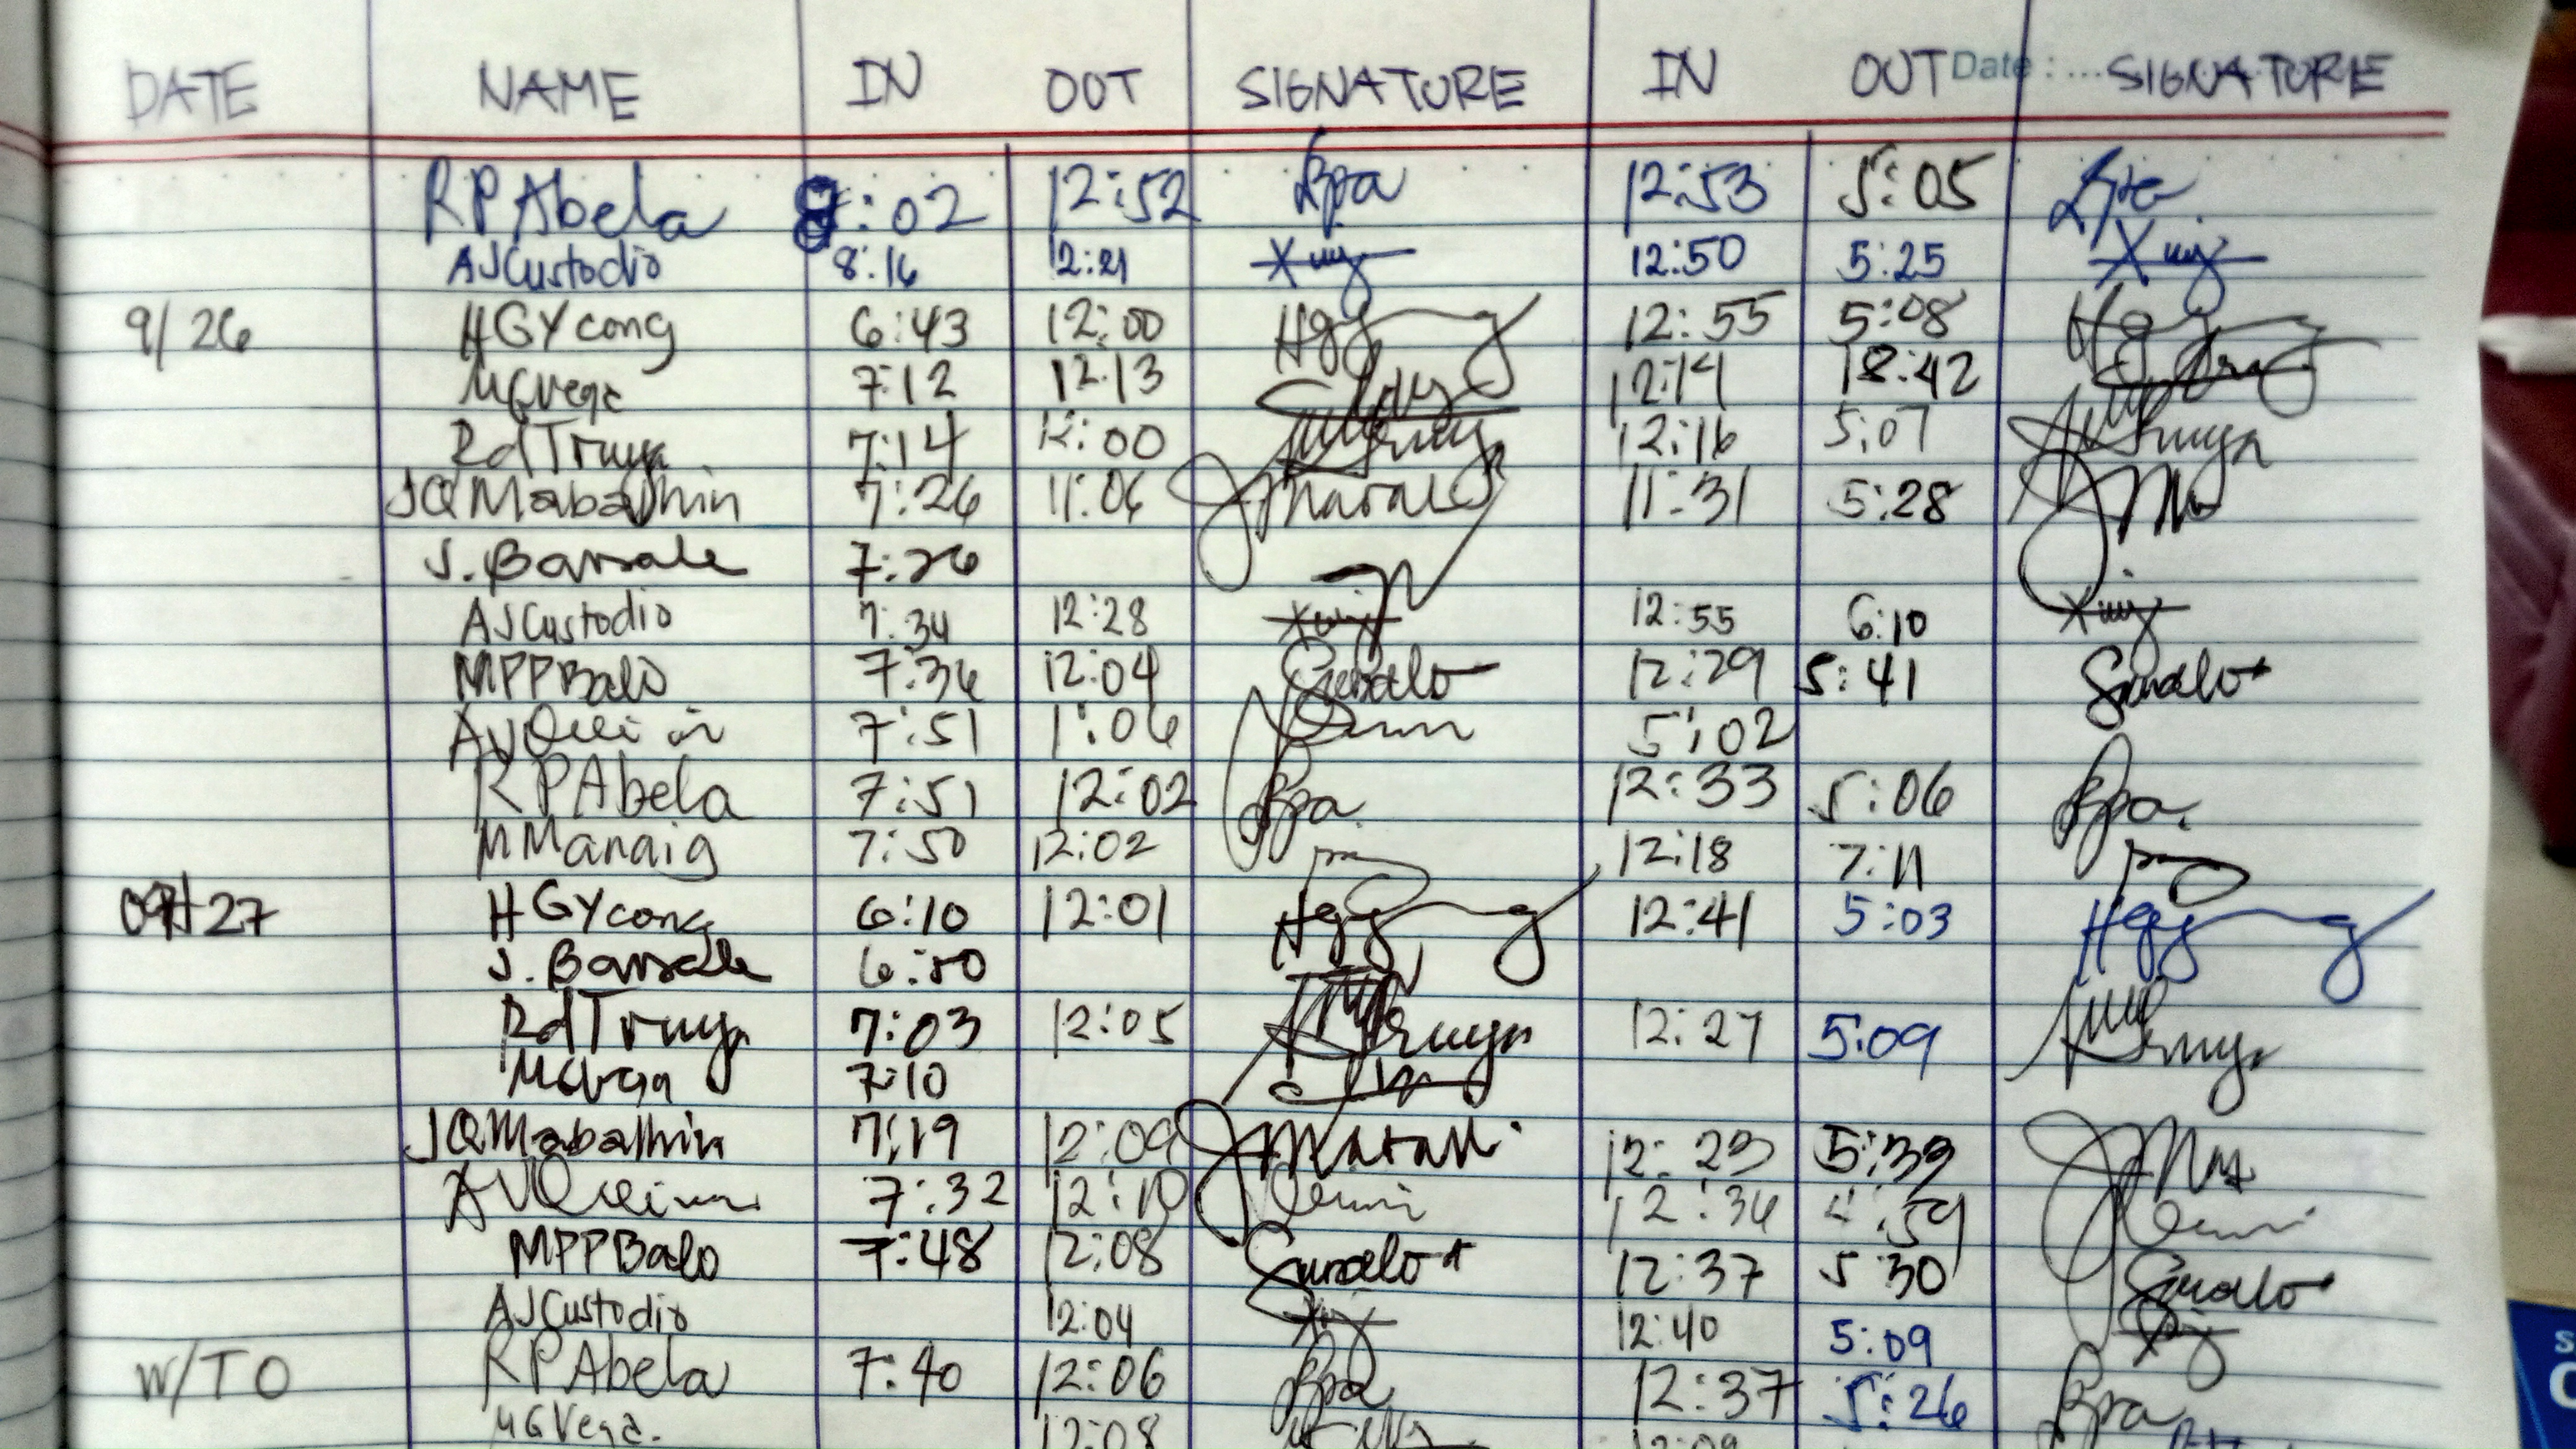 DATE NAME IN OUT SIGNATURE IN OUT Date : ... SIGNATURE
RPAbela 8:02 12:52 Rpa 12:53 5:05 Rpa
AJCustodio 8:16 12:21 12:50 5:25
9/26 HGYcong 6:43 12:00 Hgy 12:55 5:08
MGVega 7:12 12:13 12:14 18:42
RdTruya 7:14 12:00 12:16 5:07
JQMabalhin 7:26 11:06 11:31 5:28
J. Barsale 7:26
AJCustodio 7:34 12:28 12:55 6:10
MPPBalo 7:36 12:04 12:29 5:41
7:51 1:06 5:02
RPAbela 7:51 12:02 Rpa. 12:33 5:06 Rpa.
MManaig 7:50 12:02 12:18 7:11
27 HGYcong 6:10 12:01 12:41 5:03
J. Barsale 6:50
RdTruya 7:03 12:05 12:27 5:09
MGVega 7:10
JQMabalhin 7:19 12:09 12:23 5:39
7:32 12:10 12:36 4:59
MPPBalo 7:48 12:08 12:37 5 30
AJCustodio 12:04 12:40 5:09
W/TO RPAbela 7:40 12:06 Rpa 12:37 5:26 Rpa
MGVega. 12:08 12:09